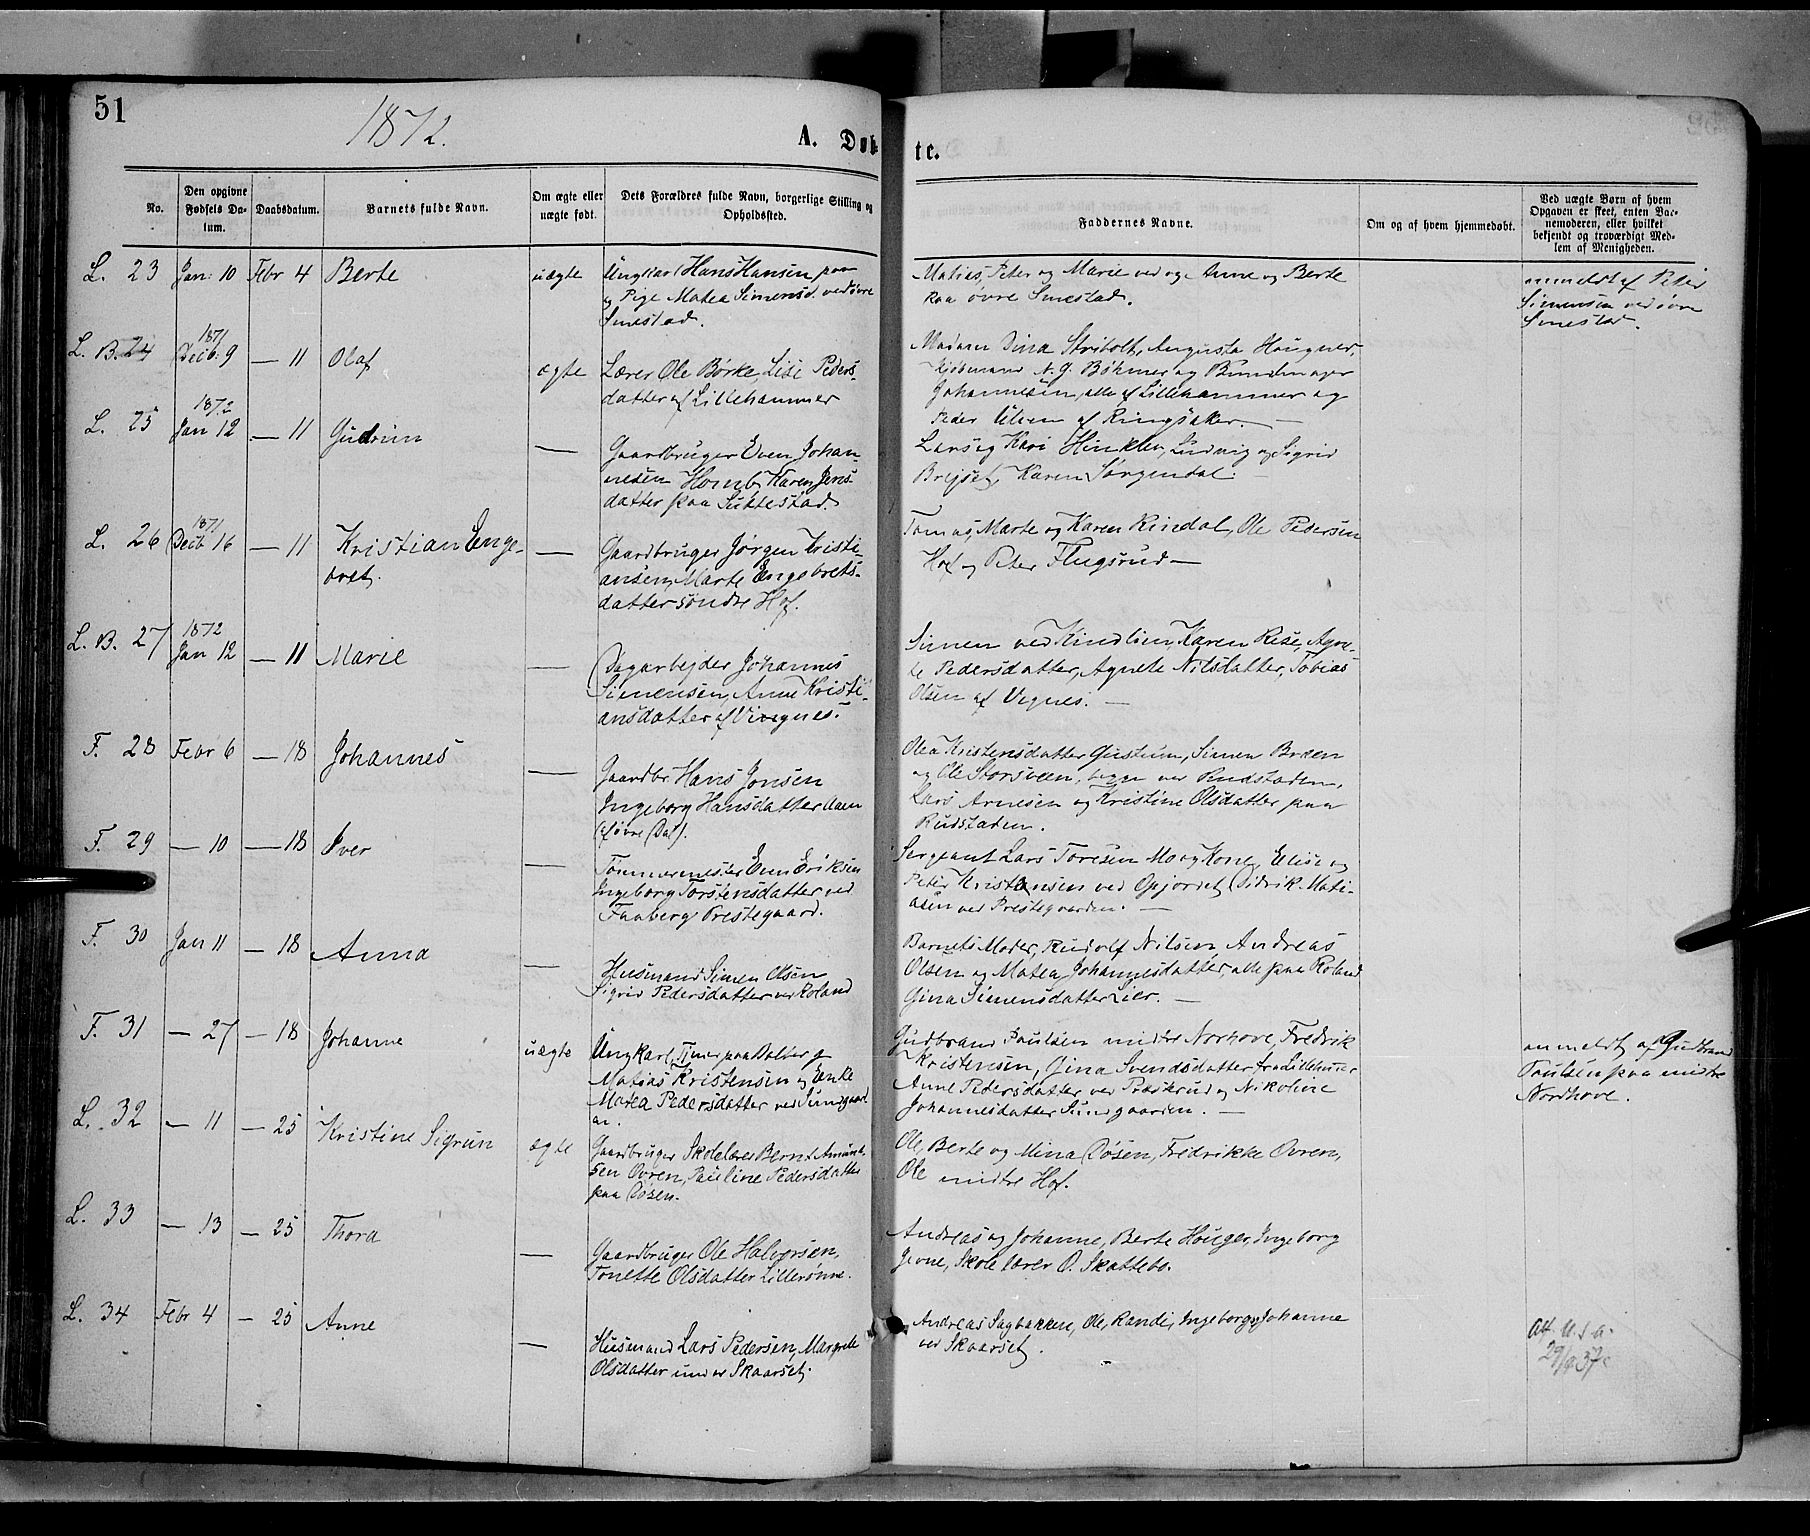 51
1872.
A. Døb-
te.
No.
Den opgivne
Fødsels Da-
tum.
Daabsdatum.
Barnets fulde Navn.
Om ægte eller
uægte født.
Dets Forældres fulde Navn, borgerlige Stilling og
Opholdssted.
Faddernes Navne.
Om og af hvem hjemmedøbt.
Ved uægte Børn af hvem
Opgaven er skeet, enten Bar-
nemoderen, eller hvilket
bekjendt og troværdigt Med-
lem af Menigheden.
L. 23 Jan: 10 Febr 4 Berte uægte
Ungkarl Hans Hansen paa
og Pige Matea Simensd. ved øvre
Smestad.
Matias, Peter og Marie ved og Anne og Berte
paa øvre Smestad.
anmeldt af Peter
Simensen ved øvre
Smestad.
L. B. 24 1871 Decb: 9 — 11 Olaf ægte
Lærer Ole Børke, Lise Peders-
datter af Lillehammer
Madam Dina Stribolt, Augusta Hougner,
Kjøbmand N. G. Bøhmer og Bundtmager
Johannesen, alle af Lillehammer og
Peder Ulven af Ringsaker. —
L. 25 1872 Jan 12 — 11 Gudrun —
Gaardbruger Even Johan-
nesen Homb, Karen Jens
datter paa Suttestad.
Lars og Kari Hinklev, Ludvig og Sigrid
Brejset, Karen Sørgendal.
L. 26 1871 Decb 16 — 11 Kristian Enge-
bret. —
Gaardbruger Jørgen Kristi-
ansen, Marte Engebrets-
datter søndre Hof.
Tomas, Marte og Karen Rindal, Ole Pedersen
Hof og Peter Flugsrud —
L. B. 27 1872 Jan 12 — 11 Marie —
Dagarbejder Johannes
Simensen, Anne Kristi-
ansdatter af Vingnes.
Simen ved Kindlien, Karen Rise, Agne-
te Pedersdatter, Agnete Nilsdatter, Tobias
Olsen af Vignes. —
F. 28 Febr 6 — 18 Johannes —
Gaardbr. Hans Jonsen
Ingeborg Hansdatter Aaen
(af øvre Dal).
Olea Kristensdatter Gustum, Simen Bræen
og Ole Storsveen, begge ved Rudstaden,
Lars Arnesen og Kristine Olsdatter paa
Rudstaden.
F. 29 — 10 — 18 Iver —
Tømmermester Even Eriksen
Ingeborg Torstensdatter ved
Faaberg Prestegaard.
Sergeant Lars Toresen Mo og Kone, Elise og
Peter Kristensen ved Opjordet, Didrik Mati-
asen ved Prestegaarden. —
F. 30 Jan 11 — 18 Anna —
Husmand Simen Olsen
Sigrid Pedersdatter ved Roland
Barnets Moder, Rudolf Nilsen, Andreas
Olsen og Matea Johannesdatter, alle paa Roland
Gina Simensdatter Lier. —
F. 31 — 27 — 18 Johanne uægte
Ungkarl, Tjener paa Dalberg
Matias Kristensen og Enke
Matea Pedersdatter ved Sundgaard
en.
Gudbrand Paulsen midtre Norhove, Fredrik
Kristensen, Gina Svendsdatter fra Lillehamer
Anne Pedersdatter ved Præskrud og Nikoline
Johannesdatter Sundgaarden. —
anmeldt af Gudbrand
Paulsen paa midtre
Nordhove.
L. 32 — 11 — 25 Kristine Sigrun ægte
Gaardbruger Skolelærer Bernt Amund-
sen Ovren, Pauline Pedersdatter
paa Døsen.
Ole, Berte og Mina Døsen, Fredrikke Ovren,
Ole midtre Hof.
L. 33 — 13 — 25 Thora —
Gaardbruger Ole Halvorsen,
Tonette Olsdatter Lillerønne.
Andreas og Johanne, Berte Houge, Ingeborg
Jevne, Skolelærer O. Skattebo.
L. 34 Febr 4 — 25 Anne —
Husmand Lars Pedersen, Margrete
Olsdatter under Skaarset.
Andreas Sagbakken, Ole, Randi, Ingeborg og Johanne
ved Skaarset.
att. U.S.A.
29/9 37.